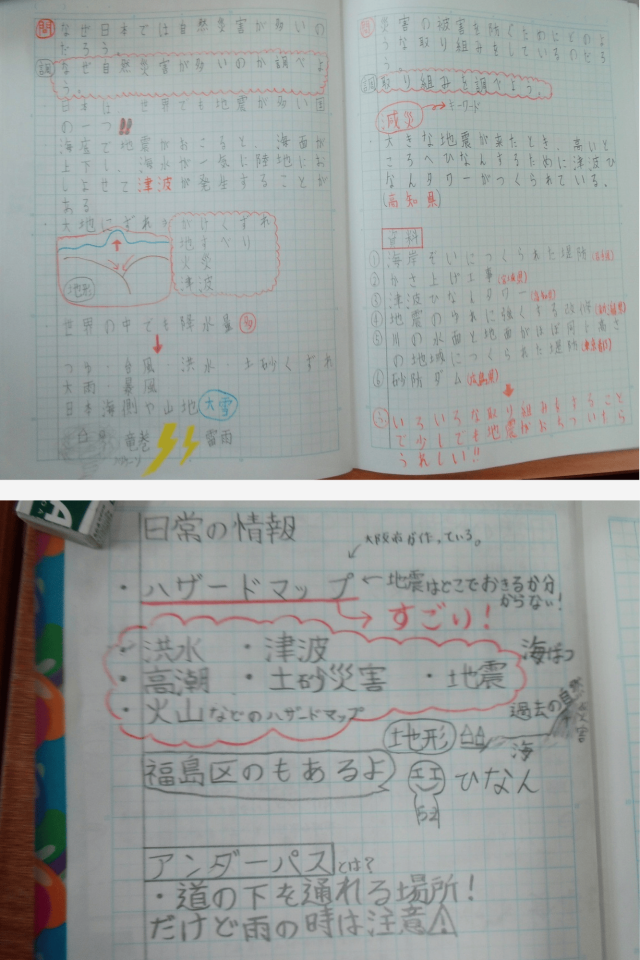 問 なぜ日本では自然災害が多いの
だろう。
調 なぜ自然災害が多いのか調べよ
う。
日本は、世界でも地震が多い国
の一つ!!
・海底で地震がおこると、海面が
上下し、海水が一気に陸地にお
しよせて津波が発生することが
ある
・大地にずれ
がけくずれ
地すべり
火災
津波
地形
・世界の中でも降水量多
つゆ・台風・洪水・土砂くずれ
大雨・暴風
日本海側や山地 大雪
竜巻 雷雨
問 災害の被害を防ぐためにどのよ
うな取り組みをしているのだろ
う。
調 取り組みを調べよう。
減災 キーワード
・大きな地震が来たとき、高いと
ころへひなんするために津波ひ
なんタワーがつくられている。
(高知県)
資料
① 海岸ぞいにつくられた堤防
② かさ上げ工事
③ 津波ひなんタワー (高知県)
④ 地震のゆれに強くする
⑤ 川の水面と地面がほぼ同じ高さ
の地域につくられた堤防 (東京都)
⑥ 砂防ダム (広島県)
いろいろな取り組みをすること
で少しでも地震がおちついたら
うれしい!!
日常の情報
大阪府が作っている。
・ハザードマップ ← 地震はどこでおきるか分
からない!
すごい!
・洪水 ・津波
・高潮 ・土砂災害 ・地震
・火山などのハザードマップ
過去の自然災害
海
地形
福島区のもあるよ
ひなん
アンダーパスとは?
・道の下を通れる場所!
だけど雨の時は注意⚠